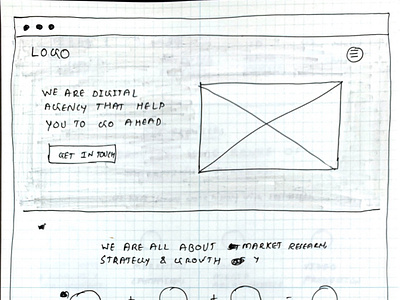 LOGO
WE ARE DIGITAL
AGENCY THAT HELP
YOU TO GO AHEAD
GET IN TOUCH
WE ARE ALL ABOUT MARKET RESEARCH
STRATEGY & GROWTH